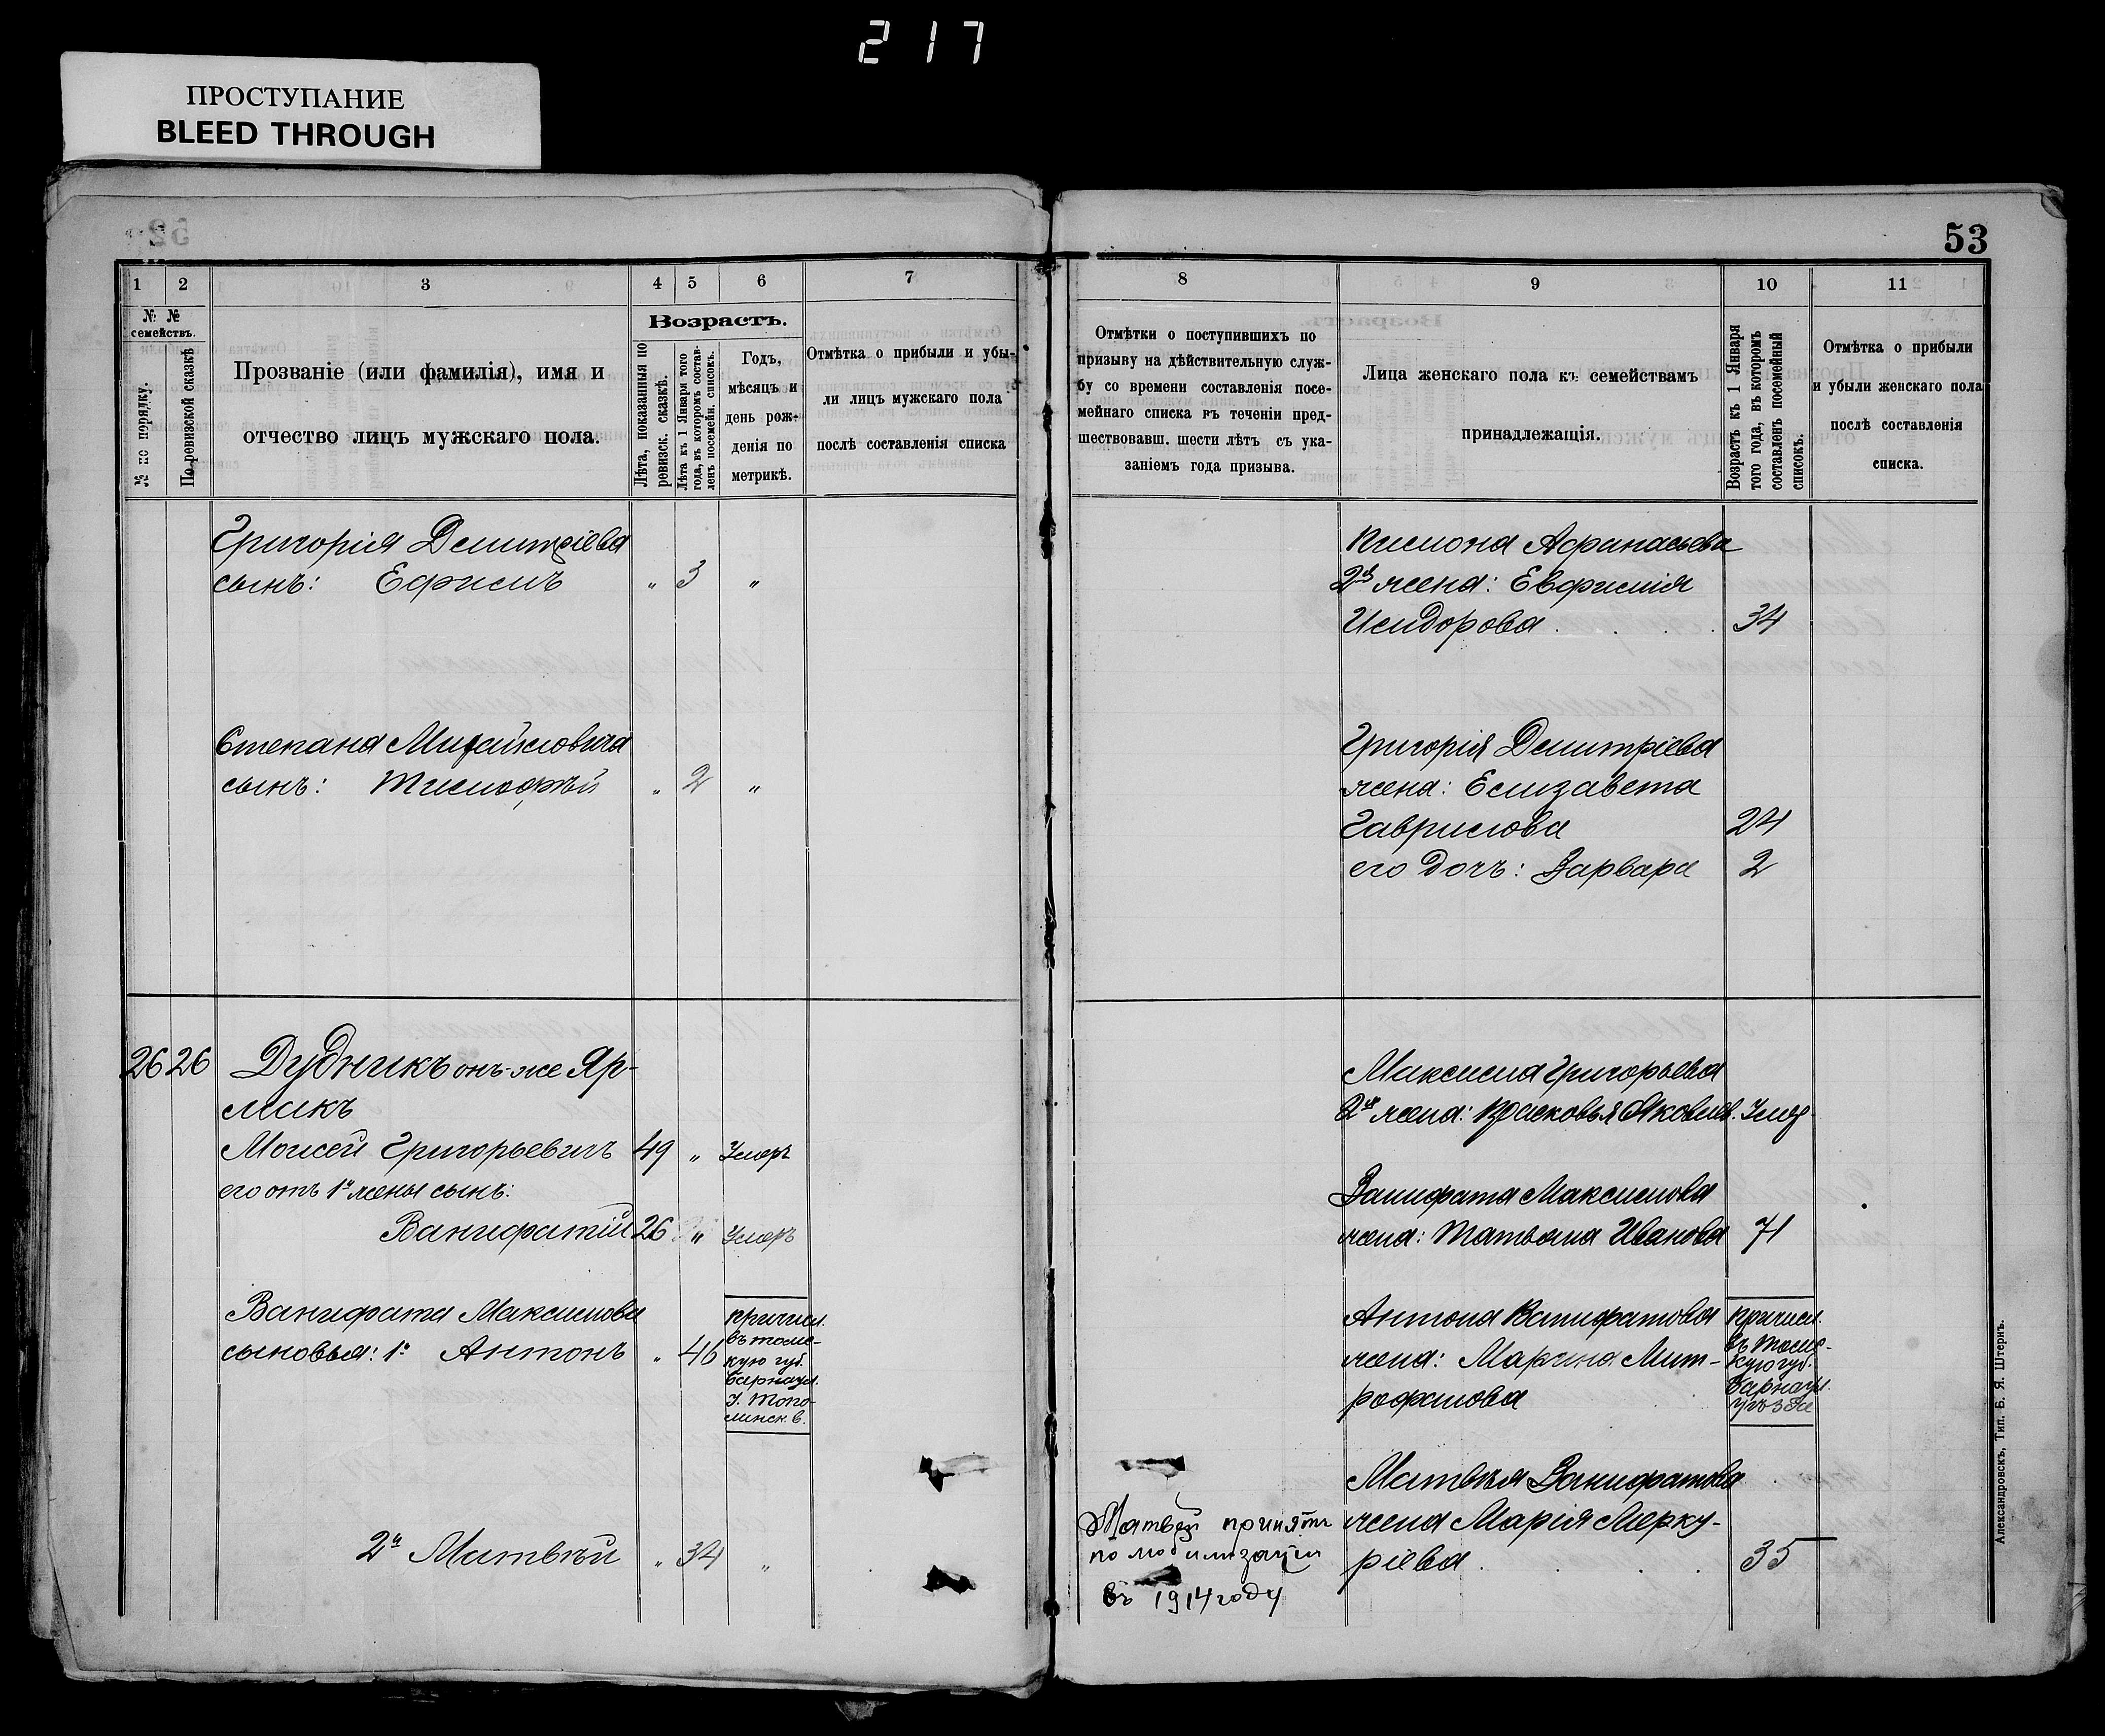 217
ПРОСТУПАНИЕ
BLEED THROUGH
53
1 2 3 4 5 6 7
№ №
семействъ.
№ по порядку.
По ревизской сказкѣ
Прозваніе (или фамилія), имя и
отчество лицъ мужскаго пола.
Возрастъ.
Лѣта, показанныя по
ревизск. сказкѣ.
Лѣта къ 1 Января того
года, въ которомъ состав-
ленъ посемейн. списокъ.
Годъ,
мѣсяцъ и
день рож-
денія по
метрикѣ.
Отмѣтка о прибыли и убы-
ли лицъ мужскаго пола
послѣ составленія списка
Григорія Демитріева
сынъ: Ефримъ " 3 "
Степана Михайловича
сынъ: Тимофѣй " 2 "
26 26 Дудникъ онъ-же Яр-
макъ
Моисей Григорьевичъ 49 " Умеръ
его отъ 1й жены сынъ:
Ванифатій 26 " Умеръ
Ванифата Максимова
сыновья: 1й Антонъ " 46
причисл.
въ томс-
кую губ.
Барнаул.
У.
2й Матвѣй " 34 "
8 9 10 11
Отмѣтки о поступившихъ по
призыву на дѣйствительную служ-
бу со времени составленія посе-
мейнаго списка въ теченіи пред-
шествовавш. шести лѣтъ съ ука-
заніемъ года призыва.
Лица женскаго пола къ семействамъ
принадлежащія.
Возрастъ къ 1 Января
того года, въ которомъ
составленъ посемейный
списокъ.
Отмѣтка о прибыли
и убыли женскаго пола
послѣ составленія
списка.
Афанасьева
2я жена: Евфимія
Исидорова 34
Григорія Демитріева
жена: Елизавета
Гаврилова 24
его дочь: Варвара 2
Максима Григорьева
2я жена: Прасковья Яковлев.
Ванифата Максимова
жена: Татьяна Иванова 71
Антона Ванифатова
жена: Марина Мит-
рофанова
причисл.
въ Томс-
кую губ.
Барнаул.
уѣзда
Матвѣя Ванифатова
жена Марія Мерку-
ріева 35
Матвей принятъ
по мобилизаціи
въ 1914 году
Александровскъ, Тип. Б. Я. Штернъ.